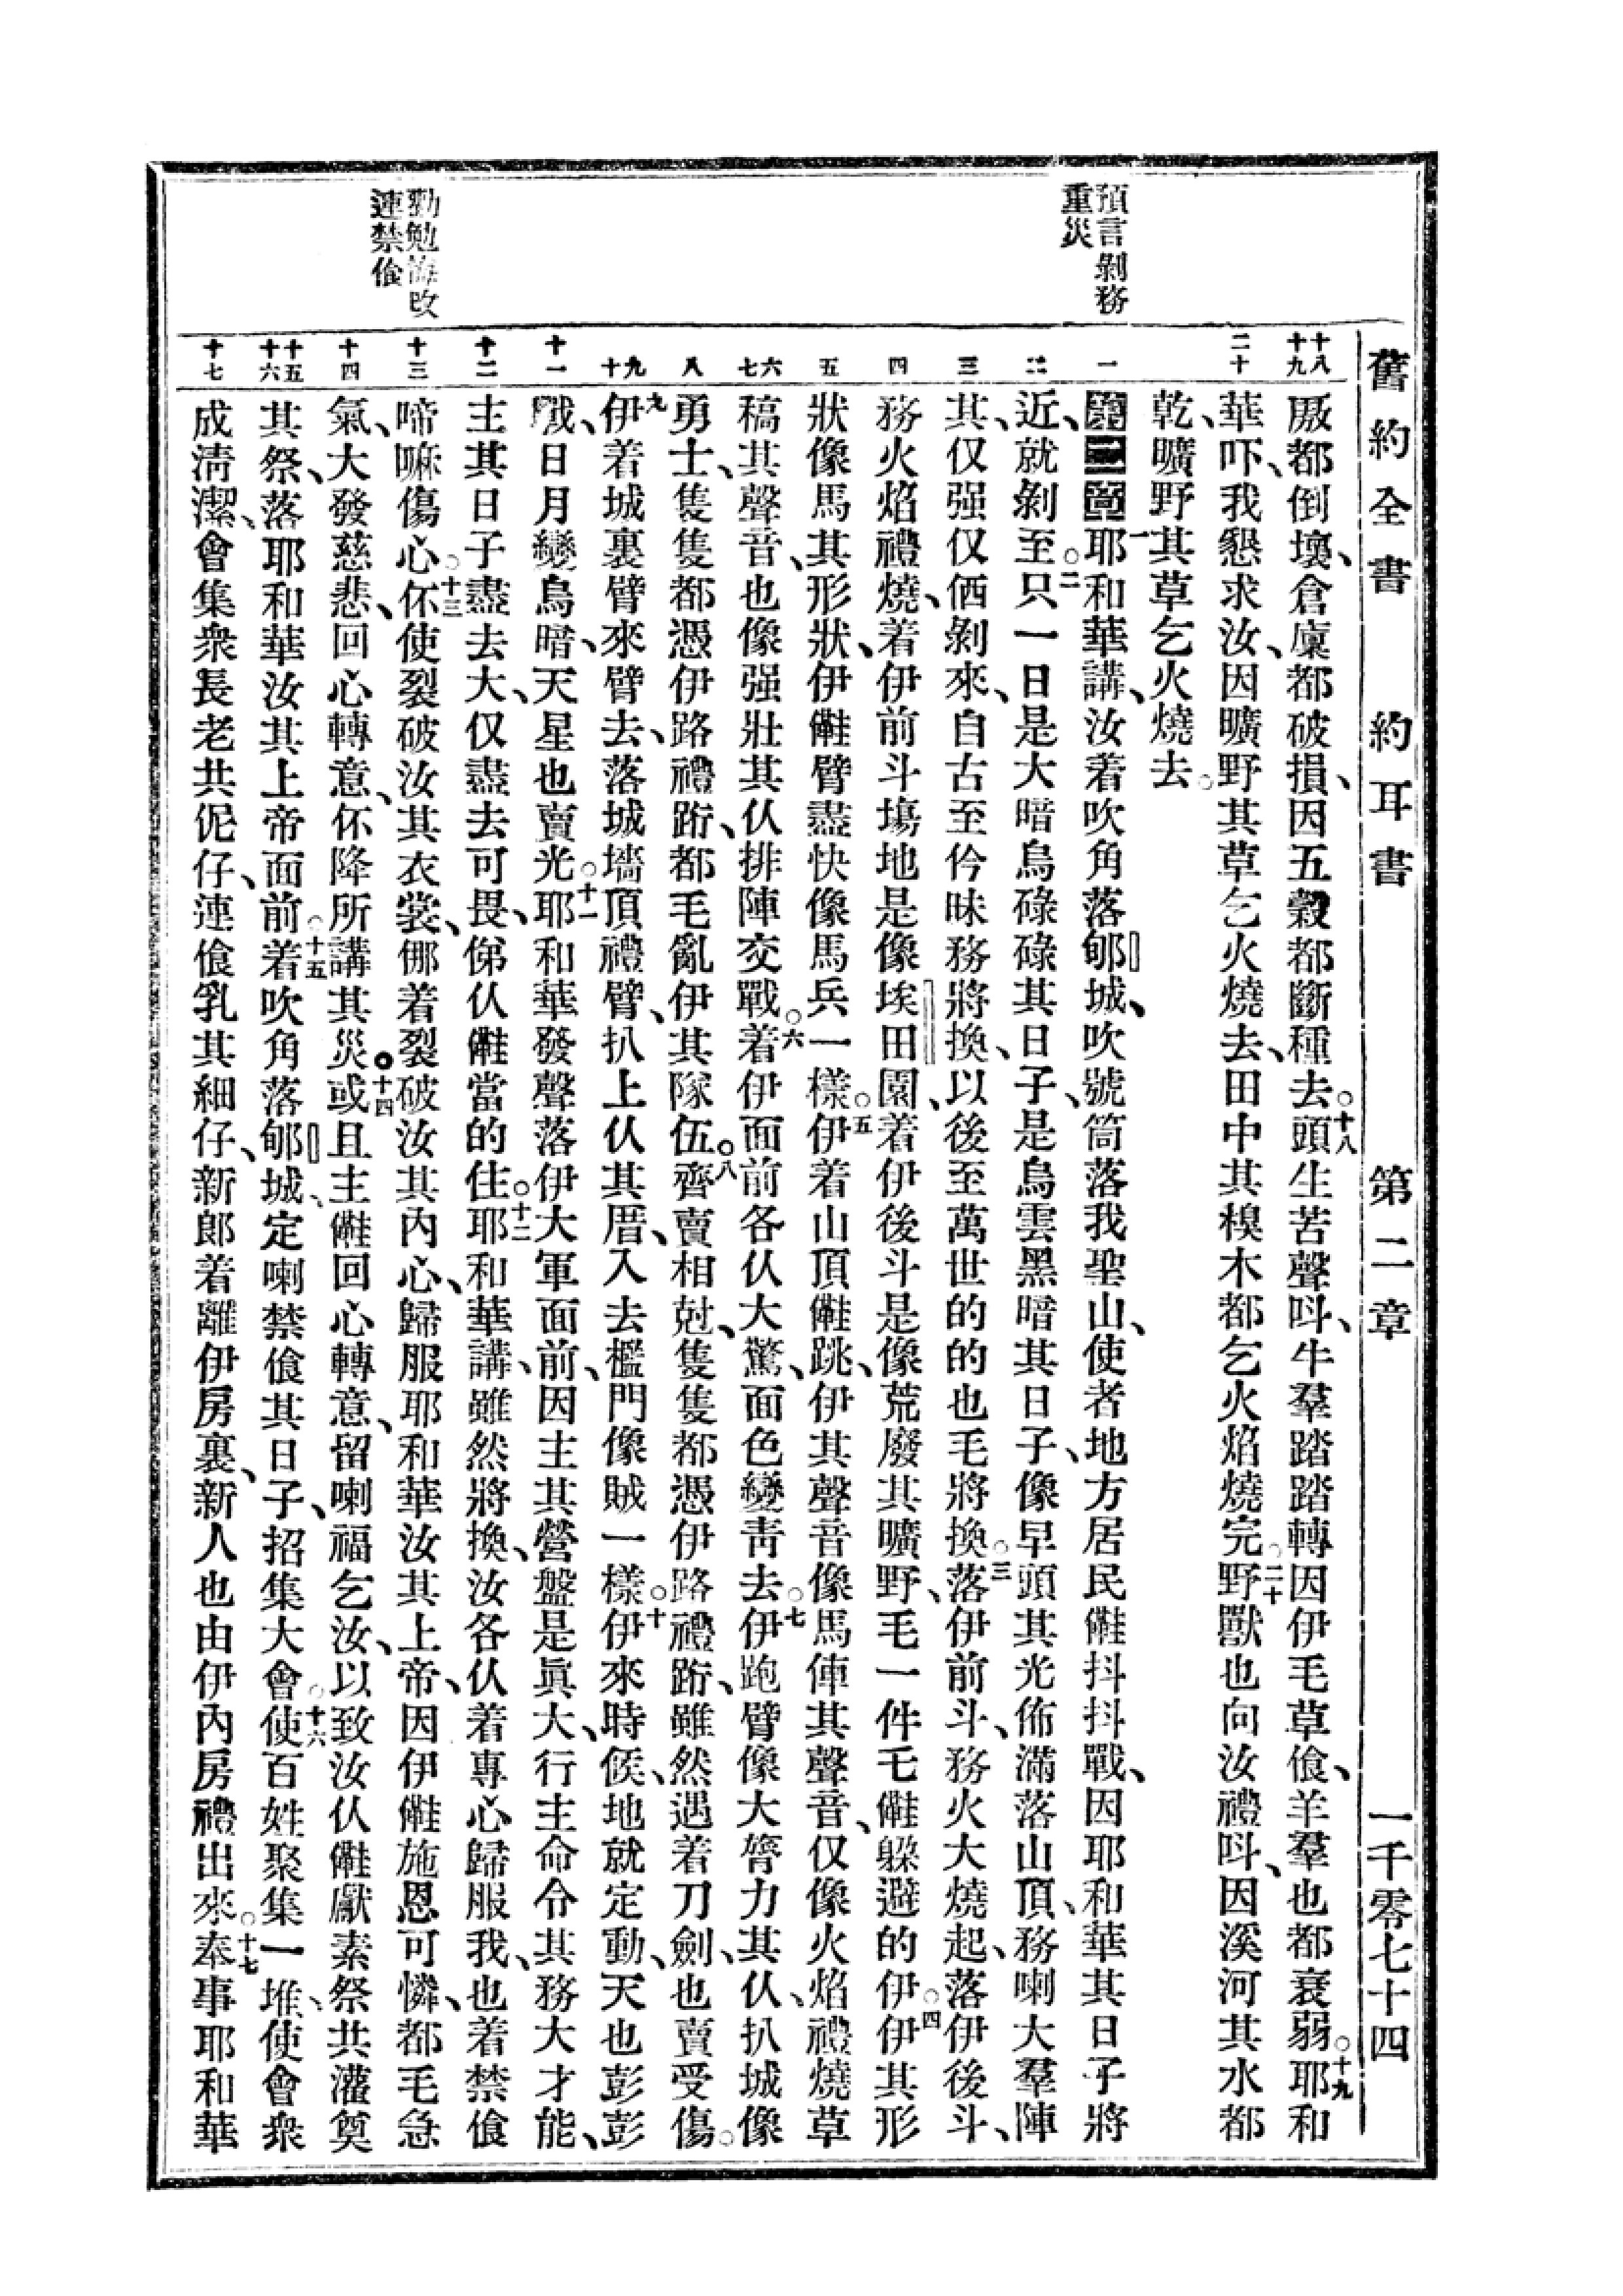 舊約全書　約耳書　第二章　一千零七十四
預言剝務
重災
勸勉悔改
連禁飡
十八
十九
二十
一
二
三
四
五
六
七
八
九
十
十一
十二
十三
十四
十五
十六
十七
厫都倒壞、倉廩都破損、因五穀都斷種去。十八頭生苦聲呌、牛羣踏踏轉因伊毛草飡、羊羣也都衰弱。十九耶和
華吓、我懇求汝、因曠野其草乞火燒去、田中其樹木都乞火焰燒完。二十野獸也向汝禮呌、因溪河其水都
乾、曠野其草乞火燒去。
第二章一耶和華講、汝着吹角落郇城、吹號筒落我聖山、使者地方居民㑚抖抖戰、因耶和華其日子將
近、就剝至。二只一日是大暗烏碌碌其日子、是烏雲黑暗其日子、像早頭其光佈滿落山頂、務喇大羣陣
其、仅强仅倕剝來、自古至仱昧務將換、以後至萬世的的也毛將換。三落伊前斗、務火大燒起、落伊後斗、
務火焰禮燒、着伊前斗塲地是像埃田園、着伊後斗是像荒廢其曠野、毛一件乇㑚躱避的伊。四伊其形
狀像馬其形狀、伊㑚臂盡快像馬兵一樣。五伊着山頂㑚跳、伊其聲音像馬俥其聲音、仅像火焰禮燒草
稿其聲音、也像强壯其仈排陣交戰。六着伊面前各仈大驚、面色變靑去。七伊跑臂像大膂力其仈、扒城像
勇士、隻隻都憑伊路禮跲、都毛亂伊其隊伍。八齊賣相尅、隻隻都憑伊路禮跲、雖然遇着刀劍、也賣受傷。
九伊着城裏臂來臂去、落城墻頂禮臂、扒上仈其厝、入去檻門像賊一樣。十伊來時候、地就定動、天也彭彭
戰、日月變烏暗、天星也賣光。十一耶和華發聲落伊大軍面前、因主其營盤是眞大、行主命令其務大才能、
主其日子盡去大、仅盡去可畏、俤仈㑚當的住。十二耶和華講、雖然將換、汝各仈着專心歸服我、也着禁飡
啼嘛傷心。十三伓使裂破汝其衣裳、倻着裂破汝其內心、歸服耶和華汝其上帝、因伊㑚施恩可憐、都毛急
氣、大發慈悲、回心轉意、伓降所講其災。十四或且主㑚回心轉意、留喇福乞汝、以致汝仈㑚獻素祭共灌奠
其祭、落耶和華汝其上帝面前。十五着吹角落郇城、定喇禁飡其日子、招集大會。十六使百姓聚集一堆、使會衆
成淸潔、會集衆長老共伲仔、連飡乳其細仔、新郞着離伊房裏、新人也由伊內房禮出來。十七奉事耶和華